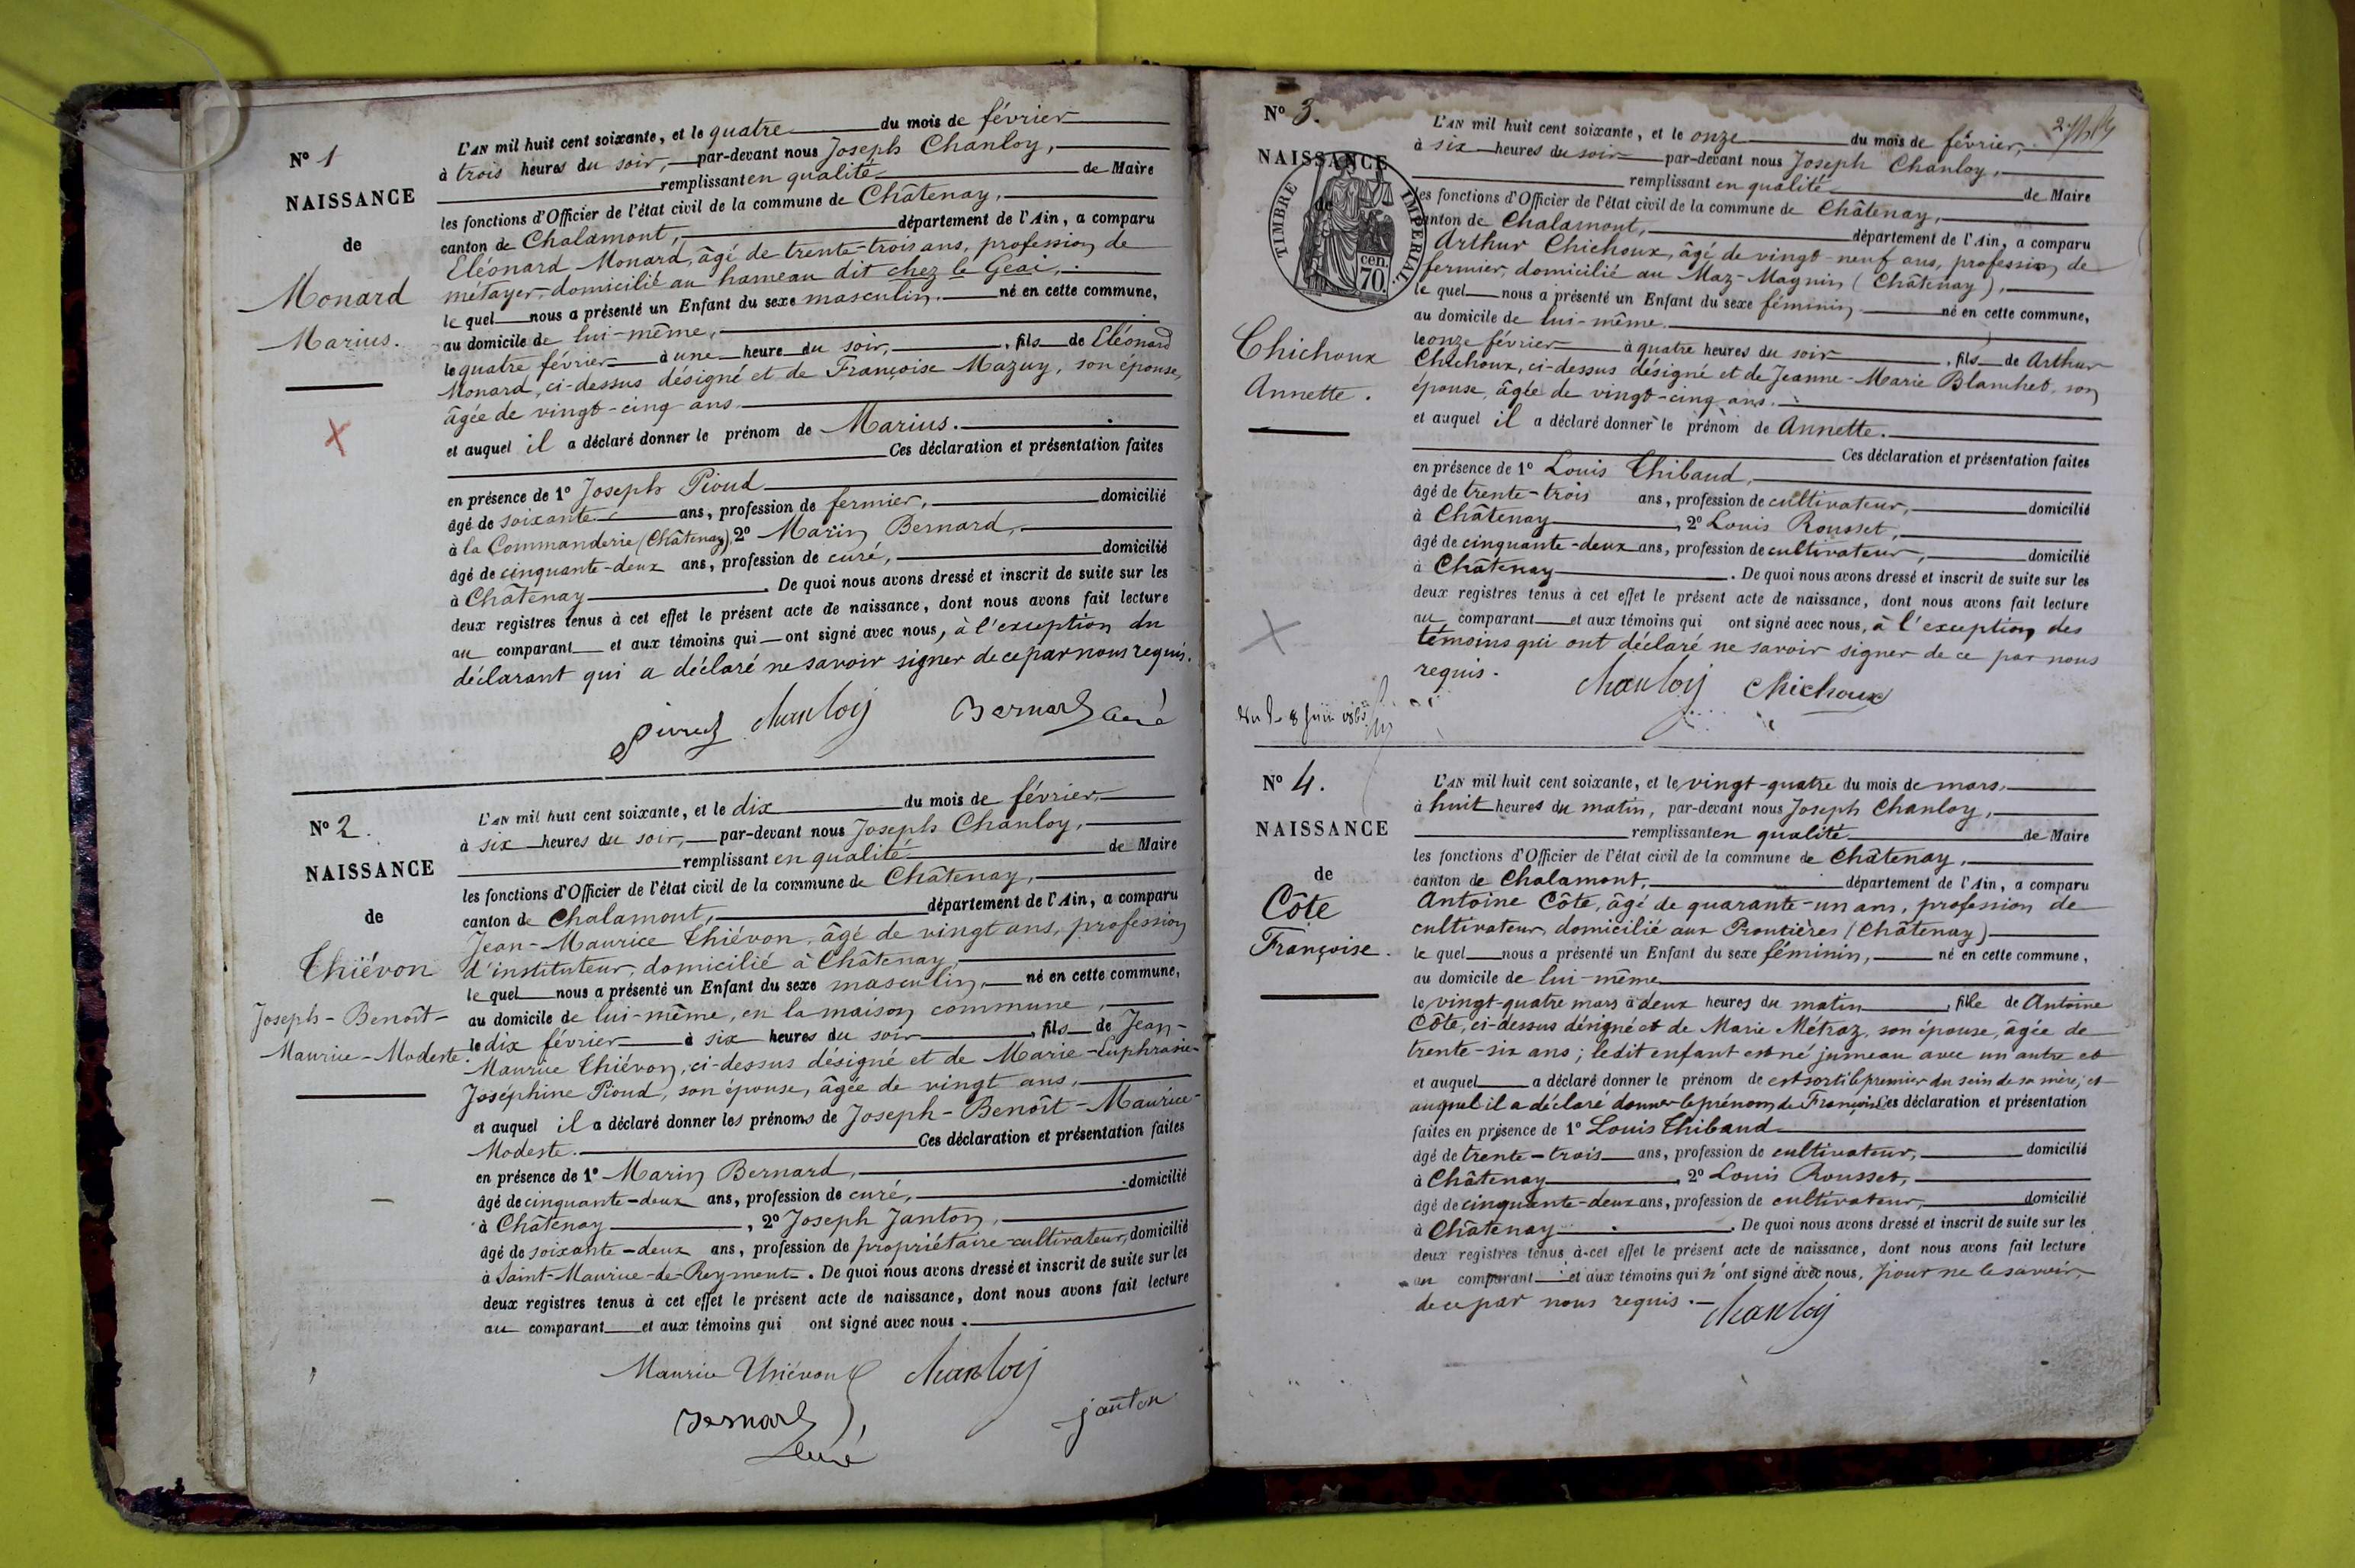 N° 1
NAISSANCE
de
Monard
Marius.
L'AN mil huit cent soixante, et le quatre du mois de février
à trois heures du soir, par-devant nous Joseph Chanloy,
remplissant en qualité de Maire
les fonctions d'Officier de l'état civil de la commune de Châtenay,
canton de Chalamont, département de l'Ain, a comparu
Eléonard Monard, âgé de trente-trois ans, profession de
métayer, domicilié au hameau dit chez le Geai,
le quel nous a présenté un Enfant du sexe masculin. né en cette commune,
au domicile de lui-même,
le quatre février à une heure du soir, , fils de Eléonard
Monard, ci-dessus désigné et de Françoise Mazuy, son épouse,
âgée de vingt-cinq ans.
et auquel il a déclaré donner le prénom de Marius.
Ces déclaration et présentation faites
en présence de 1° Joseph Pioud
âgé de soixante ans, profession de fermier, domicilié
à la Commanderie (Châtenay), 2° Marin Bernard,
âgé de cinquante-deux ans, profession de curé, domicilié
à Châtenay . De quoi nous avons dressé et inscrit de suite sur les
deux registres tenus à cet effet le présent acte de naissance, dont nous avons fait lecture
au comparant et aux témoins qui ont signé avec nous, à l'exception du
déclarant qui a déclaré ne savoir signer de ce par nous requis.
Chanloy Bernard curé
N° 2.
NAISSANCE
de
Thiévon
Joseph-Benoît-
Maurice-Modeste.
L'AN mil huit cent soixante, et le dix du mois de février,
à six heures du soir, par-devant nous Joseph Chanloy,
remplissant en qualité de Maire
les fonctions d'Officier de l'état civil de la commune de Châtenay,
canton de Chalamont, département de l'Ain, a comparu
Jean-Maurice Thiévon, âgé de vingt ans, profession
d'instituteur, domicilié à Châtenay,
le quel nous a présenté un Enfant du sexe masculin, né en cette commune,
au domicile de lui-même, en la maison commune,
le dix février à six heures du soir , fils de Jean-
Maurice Thiévon, ci-dessus désigné et de Marie-Euphrasie-
Joséphine Pioud, son épouse, âgée de vingt ans,
et auquel il a déclaré donner les prénoms de Joseph-Benoît-Maurice-
Modeste. Ces déclaration et présentation faites
en présence de 1° Marin Bernard,
âgé de cinquante-deux ans, profession de curé, domicilié
à Châtenay , 2° Joseph Janton,
âgé de soixante-deux ans, profession de propriétaire-cultivateur, domicilié
à Saint-Maurice-de-Reyment . De quoi nous avons dressé et inscrit de suite sur les
deux registres tenus à cet effet le présent acte de naissance, dont nous avons fait lecture
au comparant et aux témoins qui ont signé avec nous.
Maurice Thiévon Chanloy
Bernard janton
curé
N° 3.
NAISSANCE
de
TIMBRE IMPERIAL
70 cen.
Chichoux
Annette.
L'AN mil huit cent soixante, et le onze du mois de février,
à six heures du soir par-devant nous Joseph Chanloy,
remplissant en qualité de Maire
les fonctions d'Officier de l'état civil de la commune de Châtenay,
canton de Chalamont, département de l'Ain, a comparu
Arthur Chichoux, âgé de vingt-neuf ans, profession de
fermier, domicilié au Maz-Magnin (Châtenay),
le quel nous a présenté un Enfant du sexe féminin né en cette commune,
au domicile de lui-même.
le onze février à quatre heures du soir , fils de Arthur
Chichoux, ci-dessus désigné et de Jeanne-Marie Blanchet, son
épouse, âgée de vingt-cinq ans.
et auquel il a déclaré donner le prénom de Annette.
Ces déclaration et présentation faites
en présence de 1° Louis Thibaud,
âgé de trente-trois ans, profession de cultivateur, domicilié
à Châtenay , 2° Louis Rousset,
âgé de cinquante-deux ans, profession de cultivateur, domicilié
à Châtenay . De quoi nous avons dressé et inscrit de suite sur les
deux registres tenus à cet effet le présent acte de naissance, dont nous avons fait lecture
au comparant et aux témoins qui ont signé avec nous, à l'exception des
témoins qui ont déclaré ne savoir signer de ce par nous
requis.
Chanloy Chichoux
N° 4.
NAISSANCE
de
Côte
Françoise.
L'AN mil huit cent soixante, et le vingt-quatre du mois de mars,
à huit heures du matin, par-devant nous Joseph Chanloy,
remplissant en qualité de Maire
les fonctions d'Officier de l'état civil de la commune de Châtenay,
canton de Chalamont, département de l'Ain, a comparu
Antoine Côte, âgé de quarante-un ans, profession de
cultivateur, domicilié aux Proutières (Châtenay)
le quel nous a présenté un Enfant du sexe féminin, né en cette commune,
au domicile de lui-même
le vingt-quatre mars à deux heures du matin , fille de Antoine
Côte, ci-dessus désigné et de Marie Métraz, son épouse, âgée de
trente-six ans; ledit enfant est né jumeau avec un autre et
et auquel a déclaré donner le prénom de est sorti le premier du sein de sa mère; et
auquel il a déclaré donner le prénom de Françoise Ces déclaration et présentation
faites en présence de 1° Louis Thibaud
âgé de trente-trois ans, profession de cultivateur, domicilié
à Châtenay , 2° Louis Rousset,
âgé de cinquante-deux ans, profession de cultivateur, domicilié
à Châtenay . De quoi nous avons dressé et inscrit de suite sur les
deux registres tenus à cet effet le présent acte de naissance, dont nous avons fait lecture
au comparant et aux témoins qui n'ont signé avec nous, pour ne le savoir,
de ce par nous requis.
Chanloy